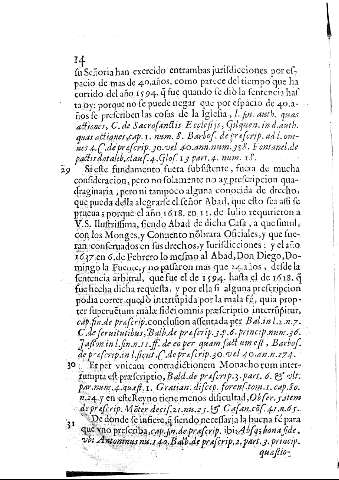 14
su Señoria han exercido entrambas jurisdicciones por es-
pacio de mas de 40. años, como parece del tiempo que ha
corrido del año 1594. q̃ fue quando se dió la sentencia has
ta oy: porque no se puede negar que por espacio de 40. a-
ños se prescriben las cosas de la Iglesia, l. fin. auth. quas
actiones, C. de Sacrosanctis Ecclesijs, Gilquen. in d. auth.
quas actiones, cap. 1. num. 8. Barbos. de præscrip. ad l. om-
nes 4. C. de præscrip. 30. vel 40. ann. num. 358. Fontanel. de
pactis dotalib. claus. 4. Glos. 13 part. 4. num. 18.
29 Si este fundamento fuera subsistente, fuera de mucha
consideracion, pero no solamente no ay prescripcion qua-
draginaria, pero ni tampoco alguna conocida de drecho,
que pueda della alegrarse el señor Abad, que esto sea assi se
prueua: porque el año 1618. en 11. de Iulio requirieron a
V.S. Ilustrissima, siendo Abad de dicha Casa, a que simul,
con los Monges, y Conuento nõbrara Oficiales, y que fue-
ran conseruados en sus drechos, y Iurisdicciones: y el año
1637 en 6. de Febrero lo mesmo al Abad, Don Diego, Do-
mingo la Fuente, y no passaron mas que 24. años, desde la
sentencia arbitral, que fue el de 1594. hasta el de 1618. q̃
fue hecha dicha requesta, y por ella si alguna prescripcion
podia correr quedò interrũpida por la mala fè, quia prop-
ter superuẽtum malæ fidei omnis præscriptio interrũpitur,
cap. fin. de præscrip. conclusion assentada per Bal. in l. 2. n. 7.
C. de seruitutibus, Balb. de præscrip. 2. p. 6. princip. num. 36.
Iason in l. fin. n. 11. ff. de eo per quam factum est, Barbos.
de præscrip. in l. sicut, C. de præscrip. 30. vel 40. an. n. 174.
30 Et per vnicam contradictionem Monachorum inter-
rumpta est præscriptio, Bald. de præscrip. 3. part. 6. & vlt.
par. num. 4. quæst. 1. Gratian. discep. forens. tom. 1. cap. 80.
n. 24. y en este Reyno tiene menos dificultad, Obser. item
de præscrip. Moter decis. 21. nu. 25. & Casan. cõs. 41. n. 65.
31 De donde se infiere, q̃ siendo necessaria la buena fè para
que vno prescriba, cap. fin. de præscrip. ibi: Absq; bona fide,
vbi Antoninus nu. 140. Balb. de præscrip. 2. part. 3. princip.
quæstio-